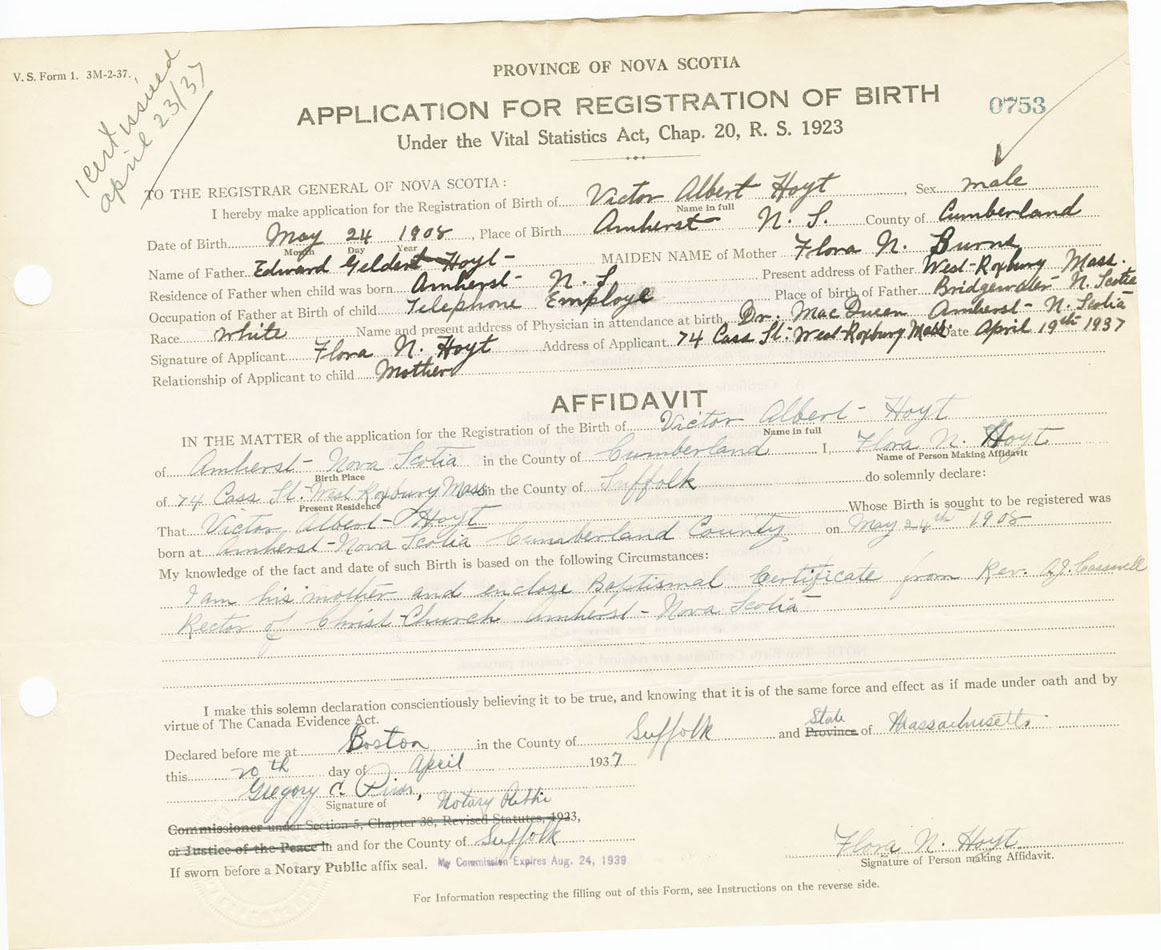 V. S. Form 1. 3M-2-37.
1 cert issued
april 23/37
PROVINCE OF NOVA SCOTIA
APPLICATION FOR REGISTRATION OF BIRTH
0753
Under the Vital Statistics Act, Chap. 20, R. S. 1923
TO THE REGISTRAR GENERAL OF NOVA SCOTIA:
I hereby make application for the Registration of Birth of Victor Albert Hoyt, Sex male
Name in full
Date of Birth May 24 1908, Place of Birth Amherst N. S. County of Cumberland
Month Day Year
Name of Father Edward Geldert Hoyt - MAIDEN NAME of Mother Flora N. Burns
Residence of Father when child was born Amherst - N. S Present address of Father West-Roxbury Mass.
Occupation of Father at Birth of child Telephone Employe Place of birth of Father Bridgewater N. Scotia
Race White Name and present address of Physician in attendance at birth Dr. Mac Amherst - N. Scotia
Signature of Applicant Flora N. Hoyt Address of Applicant 74 Cass St. West-Roxbury Mass. Date April 19th 1937
Relationship of Applicant to child Mother
AFFIDAVIT
IN THE MATTER of the application for the Registration of the Birth of Victor Albert - Hoyt
Name in full
of Amherst - Nova Scotia in the County of Cumberland I, Flora N. Hoyt
Birth Place Name of Person Making Affidavit
of 74 Cass St. West Roxbury Mass in the County of Suffolk do solemnly declare:
Present Residence
That Victor Albert - Hoyt Whose Birth is sought to be registered was
born at Amherst - Nova Scotia Cumberland County on May 24th 1908
My knowledge of the fact and date of such Birth is based on the following Circumstances:
I am his mother and enclose Baptismal Certificate from Rev. Casswell
Rector of Christ-Church Amherst - Nova Scotia
I make this solemn declaration conscientiously believing it to be true, and knowing that it is of the same force and effect as if made under oath and by
virtue of The Canada Evidence Act.
Declared before me at Boston in the County of Suffolk and State Province of Massachusetts.
this 20th day of April 1937
Gregory C.
Signature of Notary Public
Commissioner under Section 5, Chapter 38, Revised Statutes, 1923,
or Justice of the Peace in and for the County of Suffolk
If sworn before a Notary Public affix seal. My Commission Expires Aug. 24, 1939
Flora N. Hoyt
Signature of Person making Affidavit.
For Information respecting the filling out of this Form, see Instructions on the reverse side.